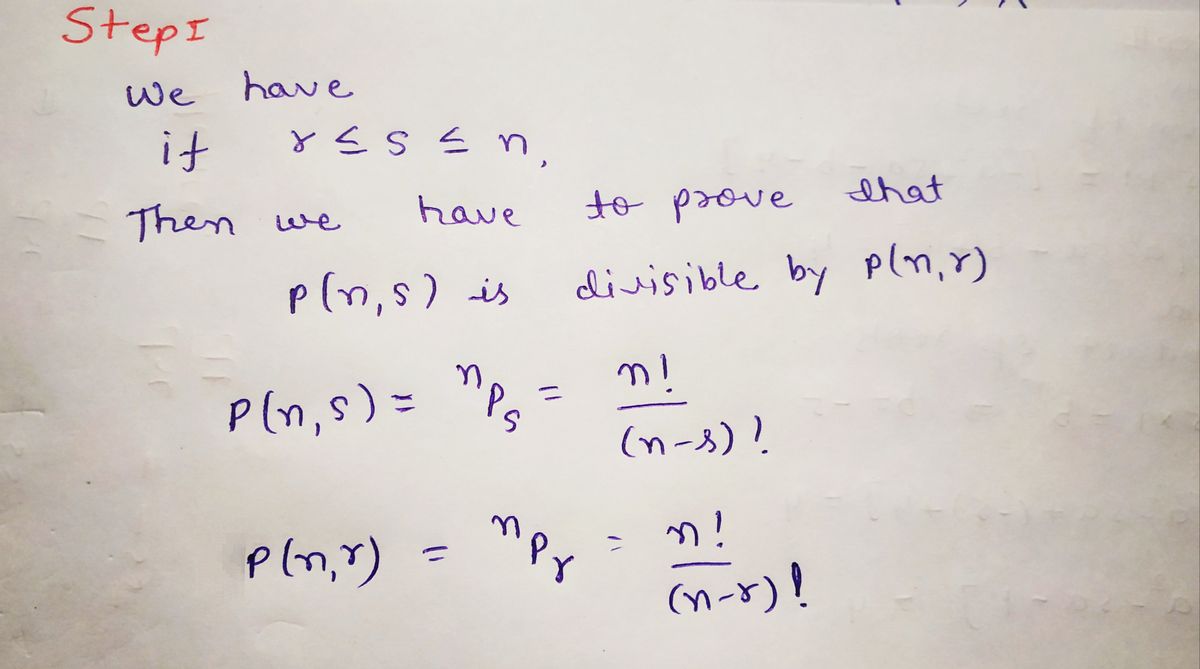 Step I
We have
if r ≤ s ≤ n,
Then we have to prove that
P(n,s) is divisible by P(n,r)
P(n,s) = ⁿPₛ = n!/(n-s)!
P(n,r) = ⁿPᵣ = n!/(n-r)!